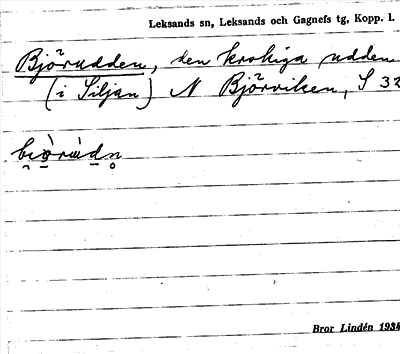 Leksands sn, Leksands och Gagnefs tg, Kopp. l.
Björudden, den krokiga udden
(i Siljan) N Björviken, S 32
Bror Lindén 1934